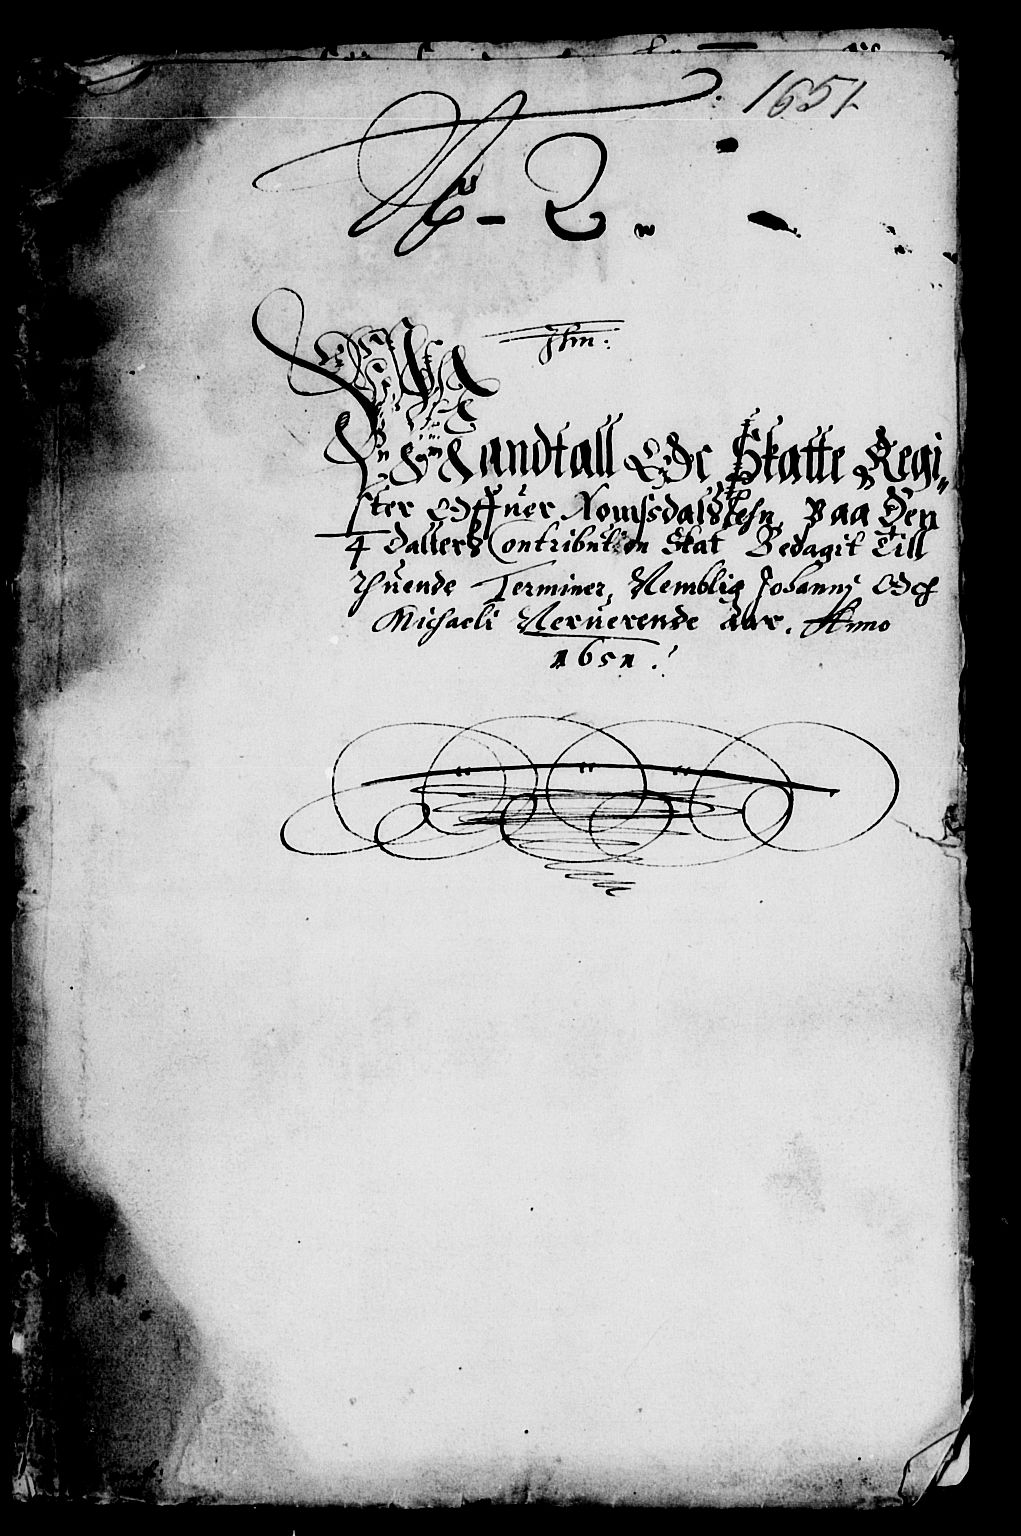 1651
No - 2
Jhm:
Mandtall Och Skatte Regi„
ster Offuer Romsdals Lehn, Paa Den
4 Dallers Contribution Skat Bedagit Till
Thuende Terminer, Nemblig Johannj Och
Michaeli Neruerende Aar. Anno
1651